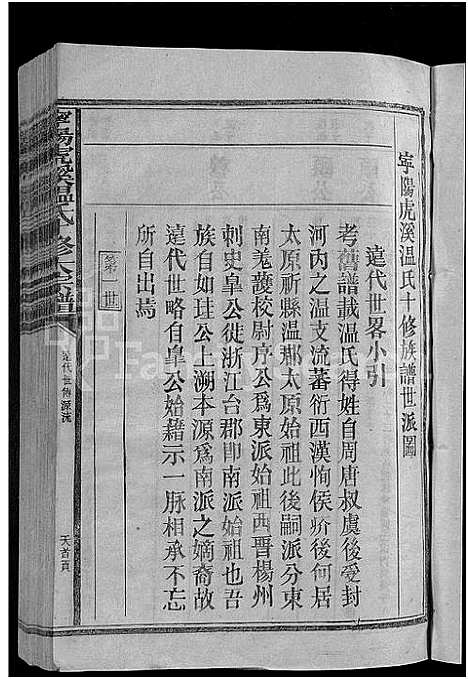 寧陽虎溪溫氏十修族譜世派圖
遠代世畧小引
考舊譜載溫氏得姓自周唐叔虞後受封
河內之溫支流蕃衍西漢恂侯疥後何居
太原祈縣溫那太原始祖此後嗣派分東
南羗護校尉房公爲東派始祖西晋楊州
刺史臯公徙浙江台郡即南派始祖也吾
族自如珪公上溯本源爲南派之嫡裔故
遠代世略自臯公始藉示一脉相承不忘
所自出焉
第一世
寧陽虎溪溫氏十修族譜
遠代世傳源流
天首頁